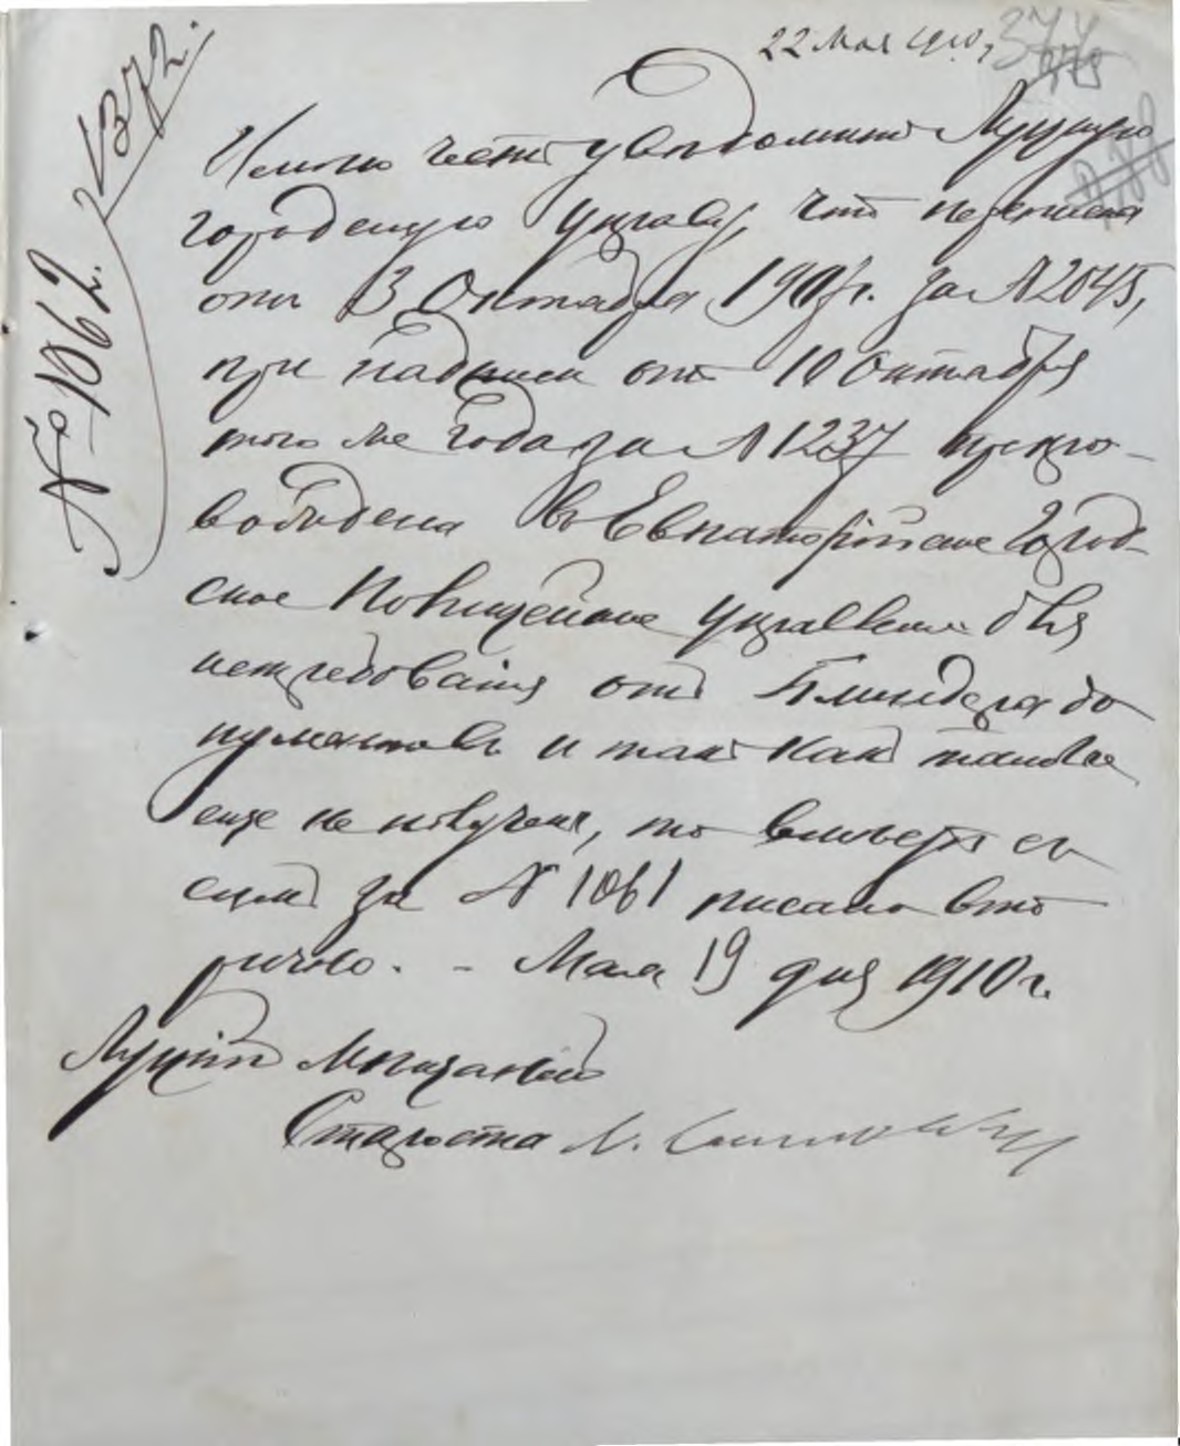 22 Мая 1910,
377
№ 1062.
1372.
Имею честь уведомить Луцкую
городскую Управу, что переписка
отъ 3 Октября 1907г. за № 2045,
при надписи отъ 10 Октября
того же года за № 1237 препро-
вождена въ Евпаторійское Город-
ское Полицейское Управленіе для
истребованія отъ до
кументовъ и такъ какъ таковые
еще не получены, то съ
симъ за № 1061 писано вто
рично. - Мая 19 дня 1910 г.
Луцкій Мѣщанскій
Староста